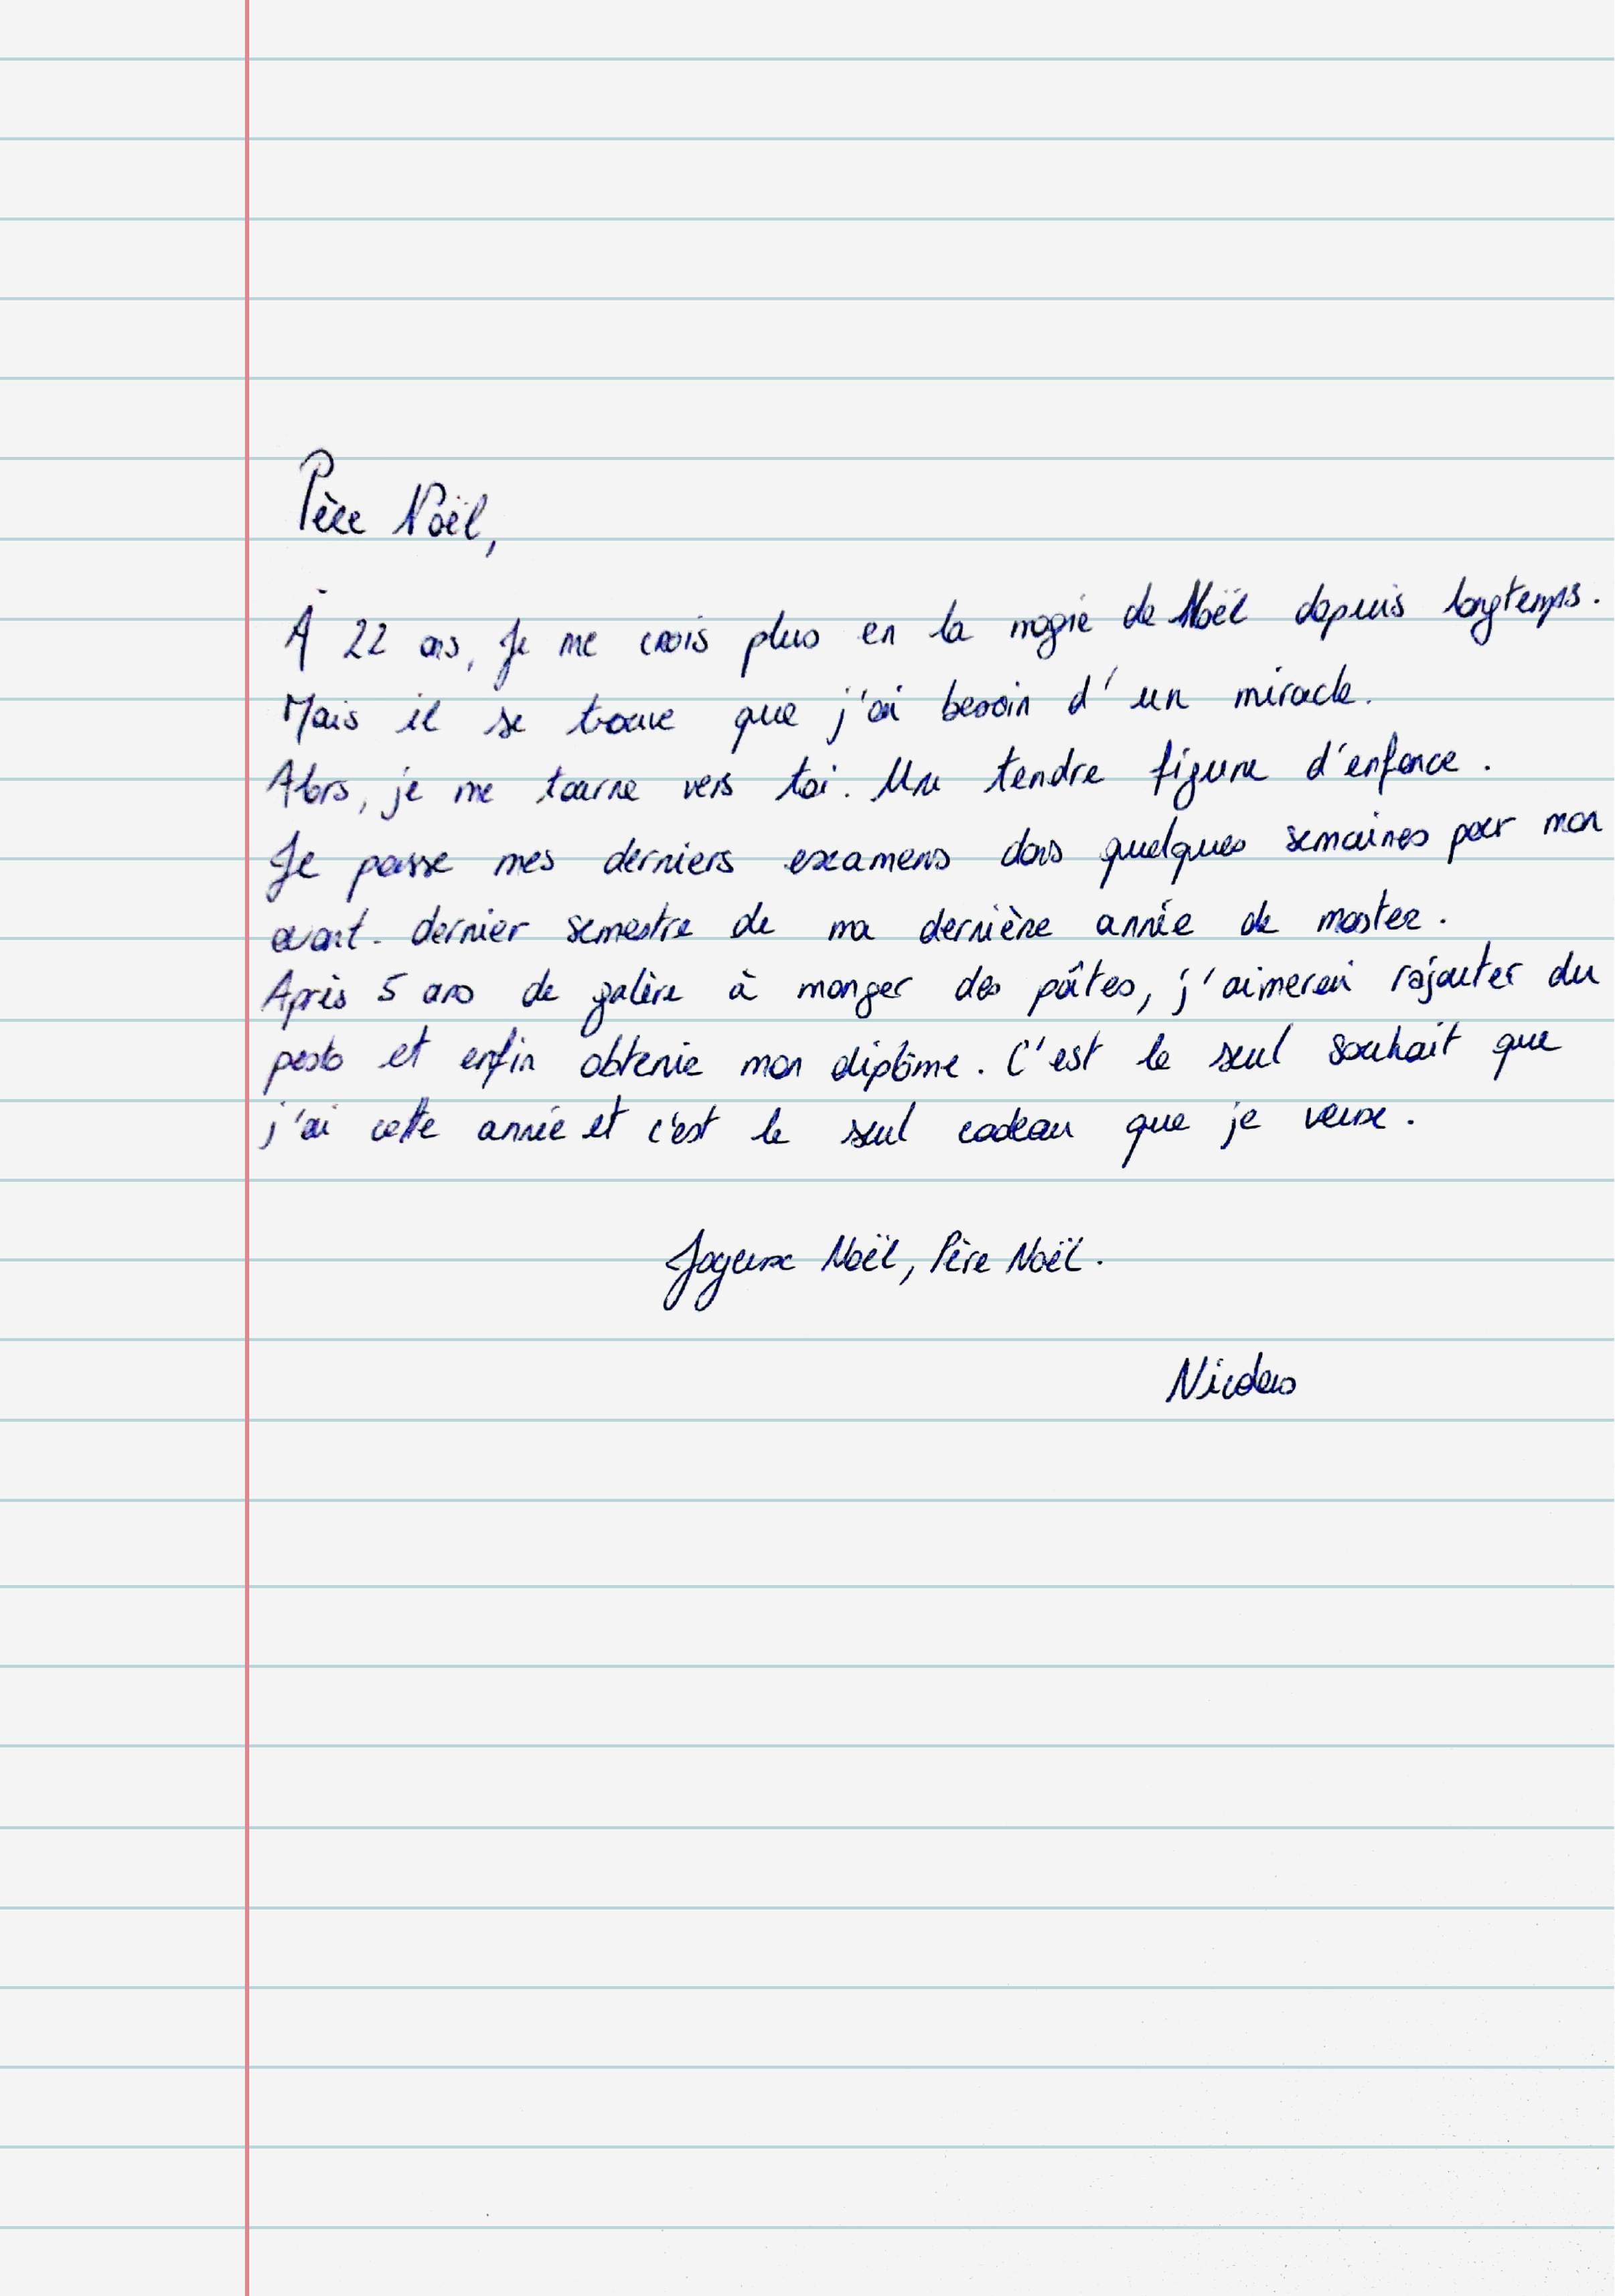 Père Noël,
À 22 ans, Je me crois plus en la magie de Noël depuis longtemps.
Mais il se trouve que j'ai besoin d'un miracle.
Alors, je me tourne vers toi. Une tendre figure d'enfance.
Je passe mes derniers examens dans quelques semaines pour mon
avant-dernier semestre de ma dernière année de master.
Après 5 ans de galère à manger des pâtes, j'aimerai rajouter du
pesto et enfin obtenir mon diplôme. C'est le seul souhait que
j'ai cette année et c'est le seul cadeau que je veux.
Joyeux Noël, Père Noël.
Nicolas